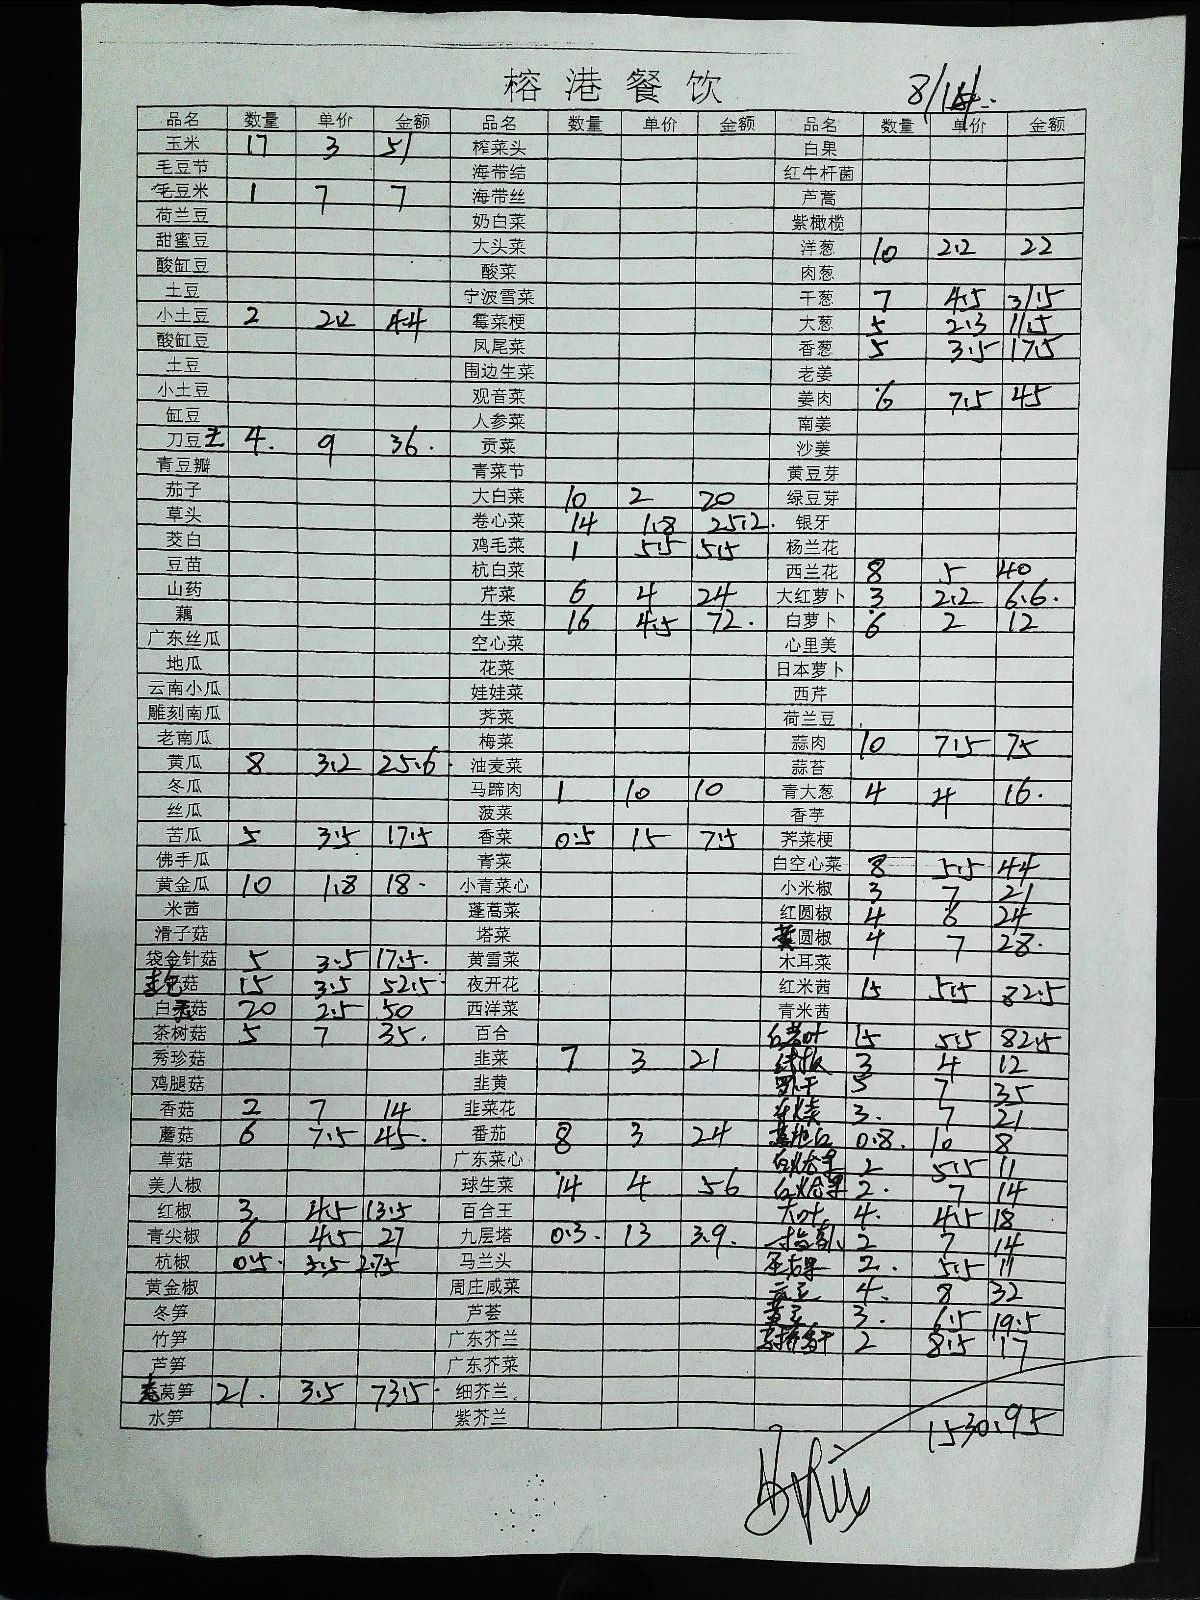 榕港餐饮
品名 数量 单价 金额 品名 数量 单价 金额 品名 数量 单价 金额
玉米 17 3 51 榨菜头 白果
毛豆节 海带结 红牛杆菌
毛豆米 1 7 7 海带丝 芦蒿
荷兰豆 奶白菜 紫橄榄
甜蜜豆 大头菜 洋葱 10 2.2 22
酸缸豆 酸菜 肉葱
土豆 宁波雪菜 干葱 7 4.5 31.5
小土豆 2 2.2 4.4 霉菜梗 大葱 5 2.3 11.5
酸缸豆 凤尾菜 香葱 5 3.5 17.5
土豆 围边生菜 老姜
小土豆 观音菜 姜肉 6 7.5 45
缸豆 人参菜 南姜
刀豆王 4. 9 36. 贡菜 沙姜
青豆瓣 青菜节 黄豆芽
茄子 大白菜 10 2 20 绿豆芽
草头 卷心菜 14 1.8 25.2. 银牙
茭白 鸡毛菜 1 5.5 5.5 杨兰花
豆苗 杭白菜 西兰花 8 5 40
山药 芹菜 6 4 24 大红萝卜 3 2.2 6.6.
藕 生菜 16 4.5 72. 白萝卜 6 2 12
广东丝瓜 空心菜 心里美
地瓜 花菜 日本萝卜
云南小瓜 娃娃菜 西芹
雕刻南瓜 荠菜 荷兰豆
老南瓜 梅菜 蒜肉 10 7.5 75
黄瓜 8 3.2 25.6. 油麦菜 蒜苔
冬瓜 马蹄肉 1 10 10 青大葱 4 4 16.
丝瓜 菠菜 香芋
苦瓜 5 3.5 17.5 香菜 0.5 15 7.5 荠菜梗
佛手瓜 青菜 白空心菜 8 5.5 44
黄金瓜 10 1.8 18. 小青菜心 小米椒 3 7 21
米茜 蓬蒿菜 红圆椒 4 6 24
滑子菇 塔菜 黄圆椒 4 7 28.
袋金针菇 5 3.5 17.5. 黄雪菜 木耳菜
菇 15 3.5 52.5. 夜开花 红米茜 15 5.5 82.5
白灵菇 20 2.5 50 西洋菜 青米茜
茶树菇 5 7 35. 百合 15 5.5 82.5
秀珍菇 韭菜 7 3 21 3 4 12
鸡腿菇 韭黄 5 7 35
香菇 2 7 14 韭菜花 3. 7 21
蘑菇 6 7.5 45. 番茄 8 3 24 0.8. 10 8
草菇 广东菜心 2 5.5 11
美人椒 球生菜 14 4 56 2. 7 14
红椒 3 4.5 13.5 百合王 大叶 4. 4.5 18
青尖椒 6 4.5 27 九层塔 0.3. 13 3.9. 2 7 14
杭椒 0.5. 5.5 2.75 马兰头 2. 5.5 11
黄金椒 周庄咸菜 4. 8 32
冬笋 芦荟 3. 6.5 19.5
竹笋 广东芥兰 2 8.5 17
芦笋 广东芥菜
莴笋 21. 3.5 73.5. 细芥兰
水笋 紫芥兰
1530.95